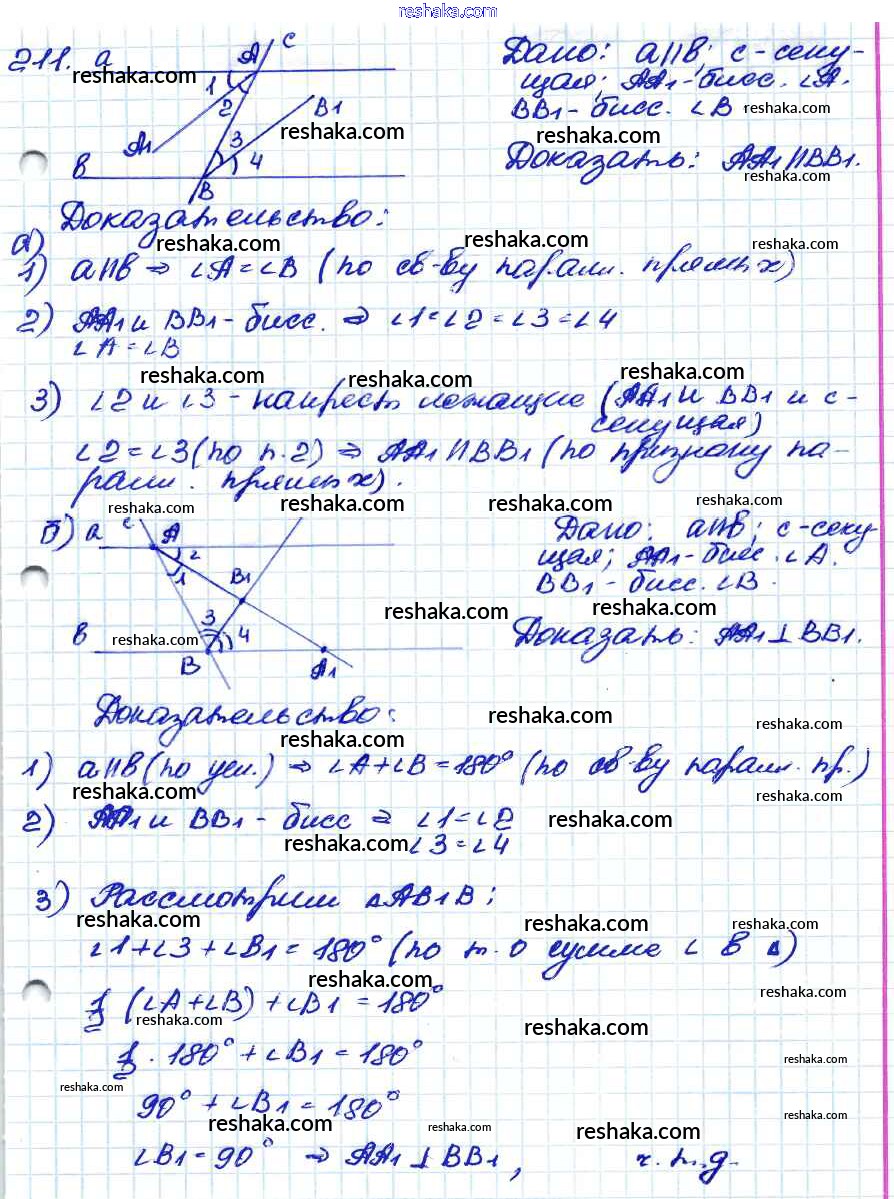 reshaka.com
211. a
A C
1 2 3 4
A1 B1
в B
Дано: a∥в; с-секу-
щая; АА1-бисс. ∠А.
ВВ1-бисс. ∠В
Доказать: АА1∥ВВ1.
Доказательство:
а)
1) a∥в ⇒ ∠А=∠В (по св-ву парал. прямых)
2) АА1 и ВВ1-бисс. ⇒ ∠1=∠2=∠3=∠4
∠А=∠В
3) ∠2 и ∠3 - накрест лежащие (АА1 и ВВ1 и с-
секущая)
∠2=∠3 (по п.2) ⇒ АА1∥ВВ1 (по признаку па-
рал. прямых).
б) a c A
2 1 B1
3 4
в B A1
Дано: a∥в; с-секу
щая; АА1-бисс. ∠А.
ВВ1-бисс. ∠В.
Доказать: АА1⊥ВВ1.
Доказательство:
1) a∥в (по усл.) ⇒ ∠А+∠В=180° (по св-ву парал. пр.)
2) АА1 и ВВ1-бисс ⇒ ∠1=∠2
∠3=∠4
3) Рассмотрим ΔАВ1В:
∠1+∠3+∠В1=180° (по т. о сумме ∠ в Δ)
1/2 (∠А+∠В)+∠В1=180°
1/2 · 180°+∠В1=180°
90°+∠В1=180°
∠В1=90° ⇒ АА1⊥ВВ1, ч.т.д.